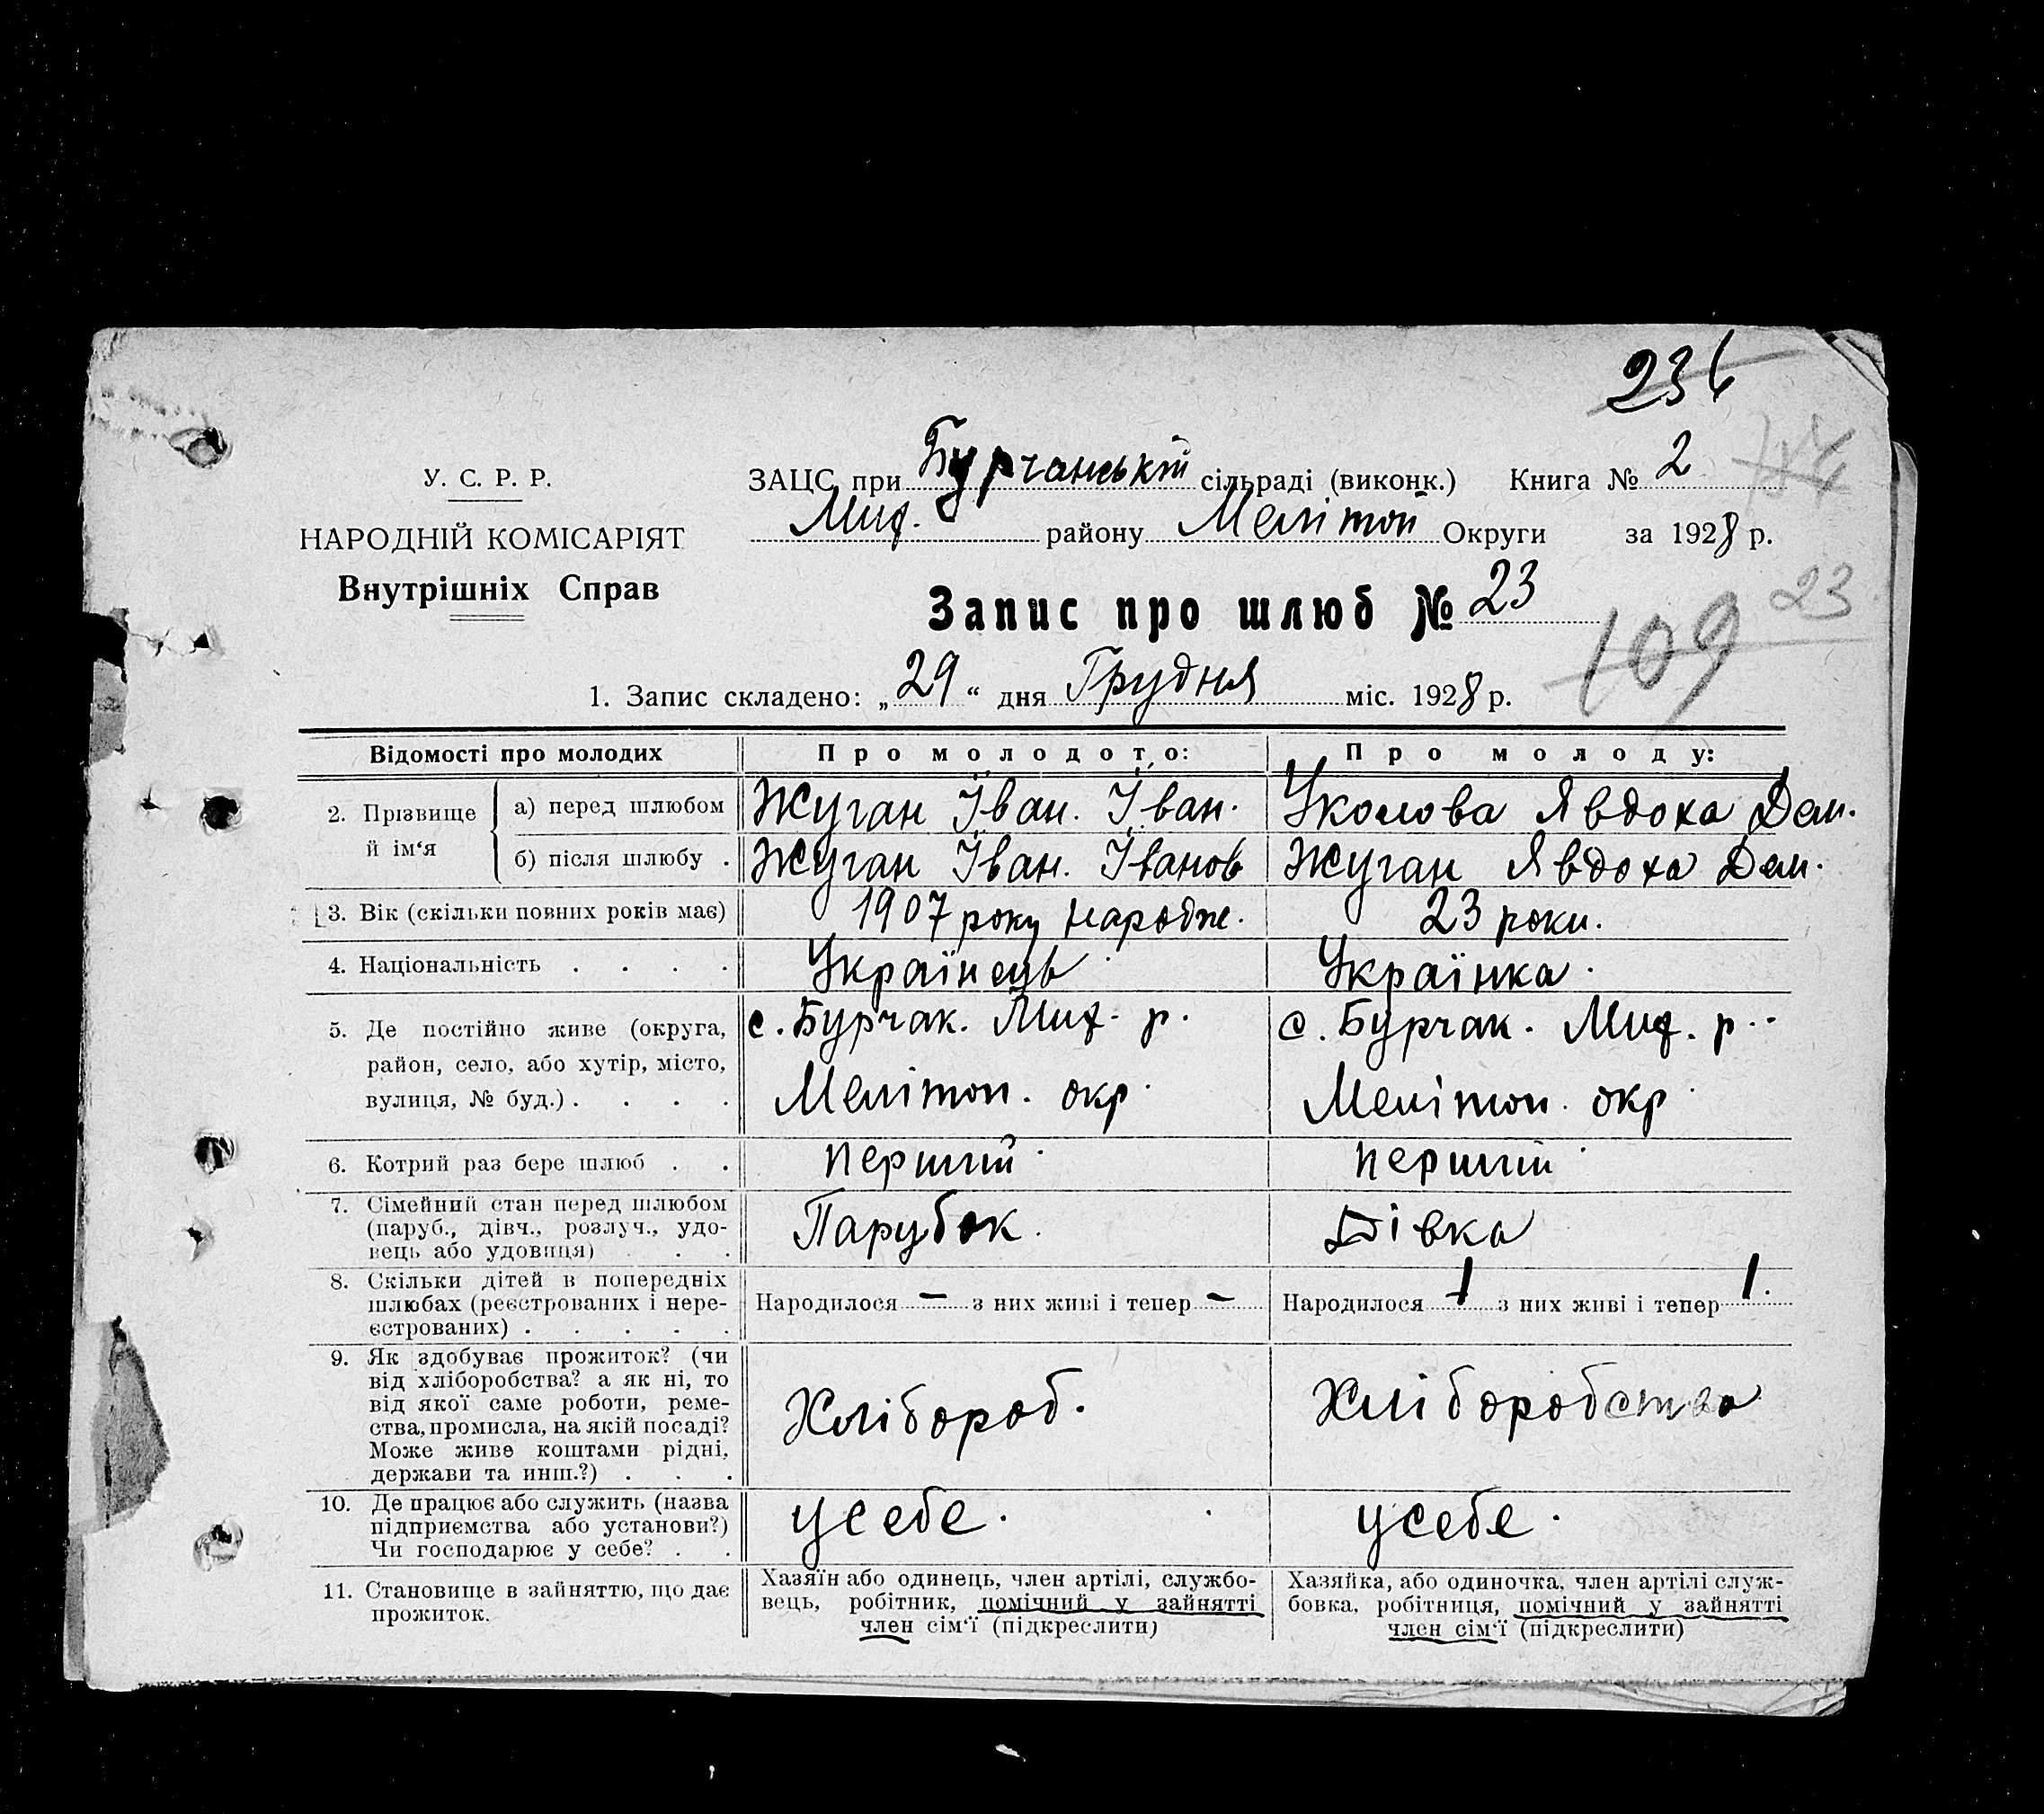 236
У. С. Р. Р.
НАРОДНІЙ КОМІСАРІЯТ
Внутрішніх Справ
ЗАЦС при Бурчанській сільраді (виконк.) Книга № 2
Мих. району Мелітоп Округи за 1928 р.
Запис про шлюб № 23
109 23
1. Запис складено: „29“ дня Грудня міс. 1928 р.
Відомості про молодих Про молодого: Про молоду:
2. Прізвище й ім‘я
а) перед шлюбом Жуган Іван. Іван. Уколова Явдоха Дем.
б) після шлюбу . Жуган Іван. Іванов Жуган Явдоха Дем.
3. Вік (скільки повних років має) 1907 року народж. 23 роки.
4. Національність . . . . Українець Українка.
5. Де постійно живе (округа,
район, село, або хутір, місто,
вулиця, № буд.) . . . .
с. Бурчак. Мих. р.
Мелітоп. окр.
с. Бурчак. Мих. р.
Мелітоп. окр.
6. Котрий раз бере шлюб . . перший. перший.
7. Сімейний стан перед шлюбом
(паруб., дівч., розлуч., удо-
вець або удовиця) . . .
Парубок.
Дівка
8. Скільки дітей в попередніх
шлюбах (реєстрованих і нере-
єстрованих) . . . . .
Народилося — з них живі і тепер —
Народилося 1 з них живі і тепер 1.
9. Як здобуває прожиток? (чи
від хліборобства? а як ні, то
від якої саме роботи, реме-
ства, промисла, на якій посаді?
Може живе коштами рідні,
держави та инш.?) . . .
Хлібороб.
Хліборобство
10. Де працює або служить (назва
підприємства або установи?)
Чи господарює у себе? . .
усебе.
усебе.
11. Становище в зайняттю, що дає
прожиток.
Хазяїн або одинець, член артілі, службо-
вець, робітник, помічний у зайнятті
член сім‘ї (підкреслити)
Хазяйка, або одиночка, член артілі служ-
бовка, робітниця, помічний у зайнятті
член сім‘ї (підкреслити)